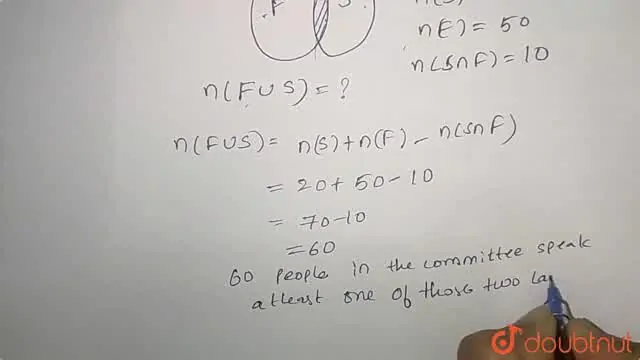 F S
n(E) = 50
n(S∩F) = 10
n(F∪S) = ?
n(F∪S) = n(S) + n(F) - n(S∩F)
= 20 + 50 - 10
= 70 - 10
= 60
60 people in the committee speak
atleast one of those two la
doubtnut